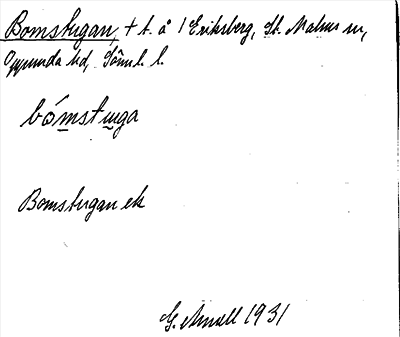 Bomstugan, + t. å 1 Eriksberg, St. Malms sn,
Oppunda hd, Söml. l.
bómstuga
Bomstugan ek
G. Amell 1931